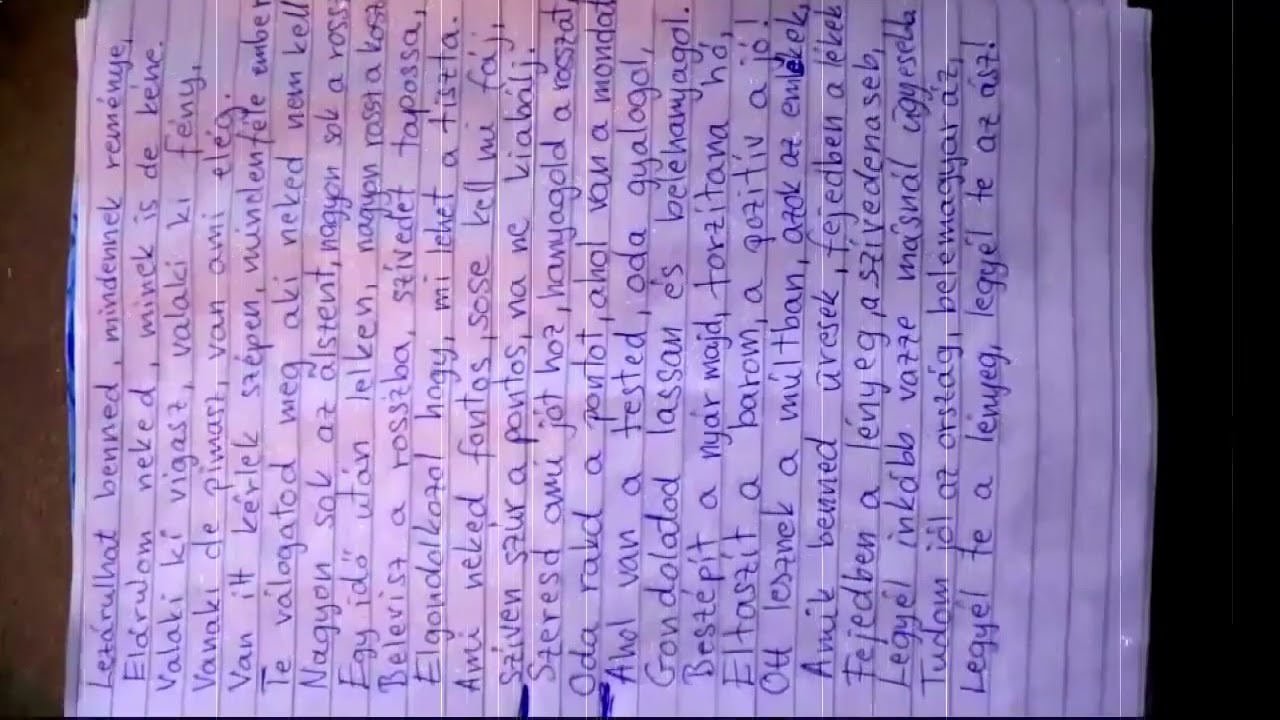 Lezárulhat benned, mindennek reménye,
Elárulom neked, minek is de kéne.
Valaki ki vigasz, valaki ki fény,
Vanaki de pimasz, van ami elég.
Van itt kérlek szépen, mindenféle ember
Te válogatod meg aki neked nem kell
Nagyon sok az álszent, nagyon sok a rossz
Egy idő után lelken, nagyon rossz a kosz
Belevisz a rosszba, szívedet tapossa,
Elgondolkozol hogy, mi lehet a tiszta.
Ami neked fontos, sose kell mi fáj,
Szíven szúr a pontos, na ne kiabálj.
Szeresd ami jót hoz, hanyagold a rosszat,
Oda rakd a pontot, ahol van a mondat
Ahol van a tested, oda gyalogol,
Gondolatod lassan és belehanyagol.
Beszépít a nyár majd, torzítana hó,
Eltaszít a barom, a pozitív a jó!
Ott lesznek a múltban, azok az emlékek,
Amik benned üresek, fejedben a lékek
Fejedben a lényeg, a szívedenaseb,
Legyél inkább vazze másnál ügyesebb
Tudom jól az ország, belemagyaráz,
Legyél te a lényeg, legyél te az ász!